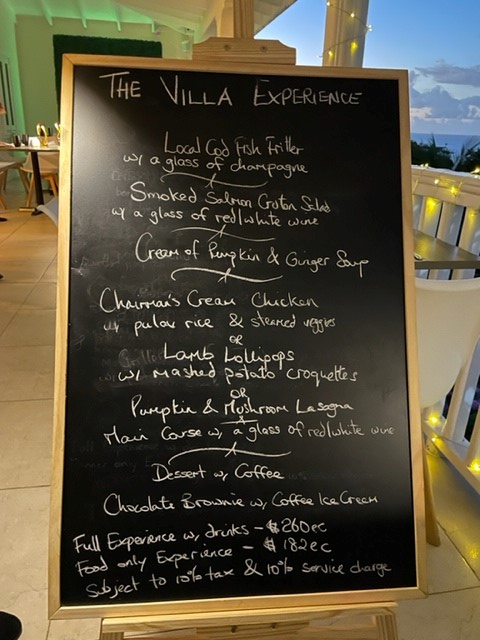 THE VILLA EXPERIENCE
Local Cod Fish Fritter
w/ a glass of champagne
Smoked Salmon Croton Salad
w/ a glass of red/white wine
Cream of Pumpkin & Ginger Soup
Chairman's Cream Chicken
w/ pulau rice & steamed veggies
OR
Lamb Lollipops
w/ Mashed potato croquettes
OR
Pumpkin & Mushroom Lasagna
Main Course w, a glass of red/white wine
Dessert w, Coffee
Chocolate Brownie w, Coffee Ice Cream
Full Experience w, drinks - $260ec
Food only Experience - $182ec
Subject to 10% tax & 10% service charge